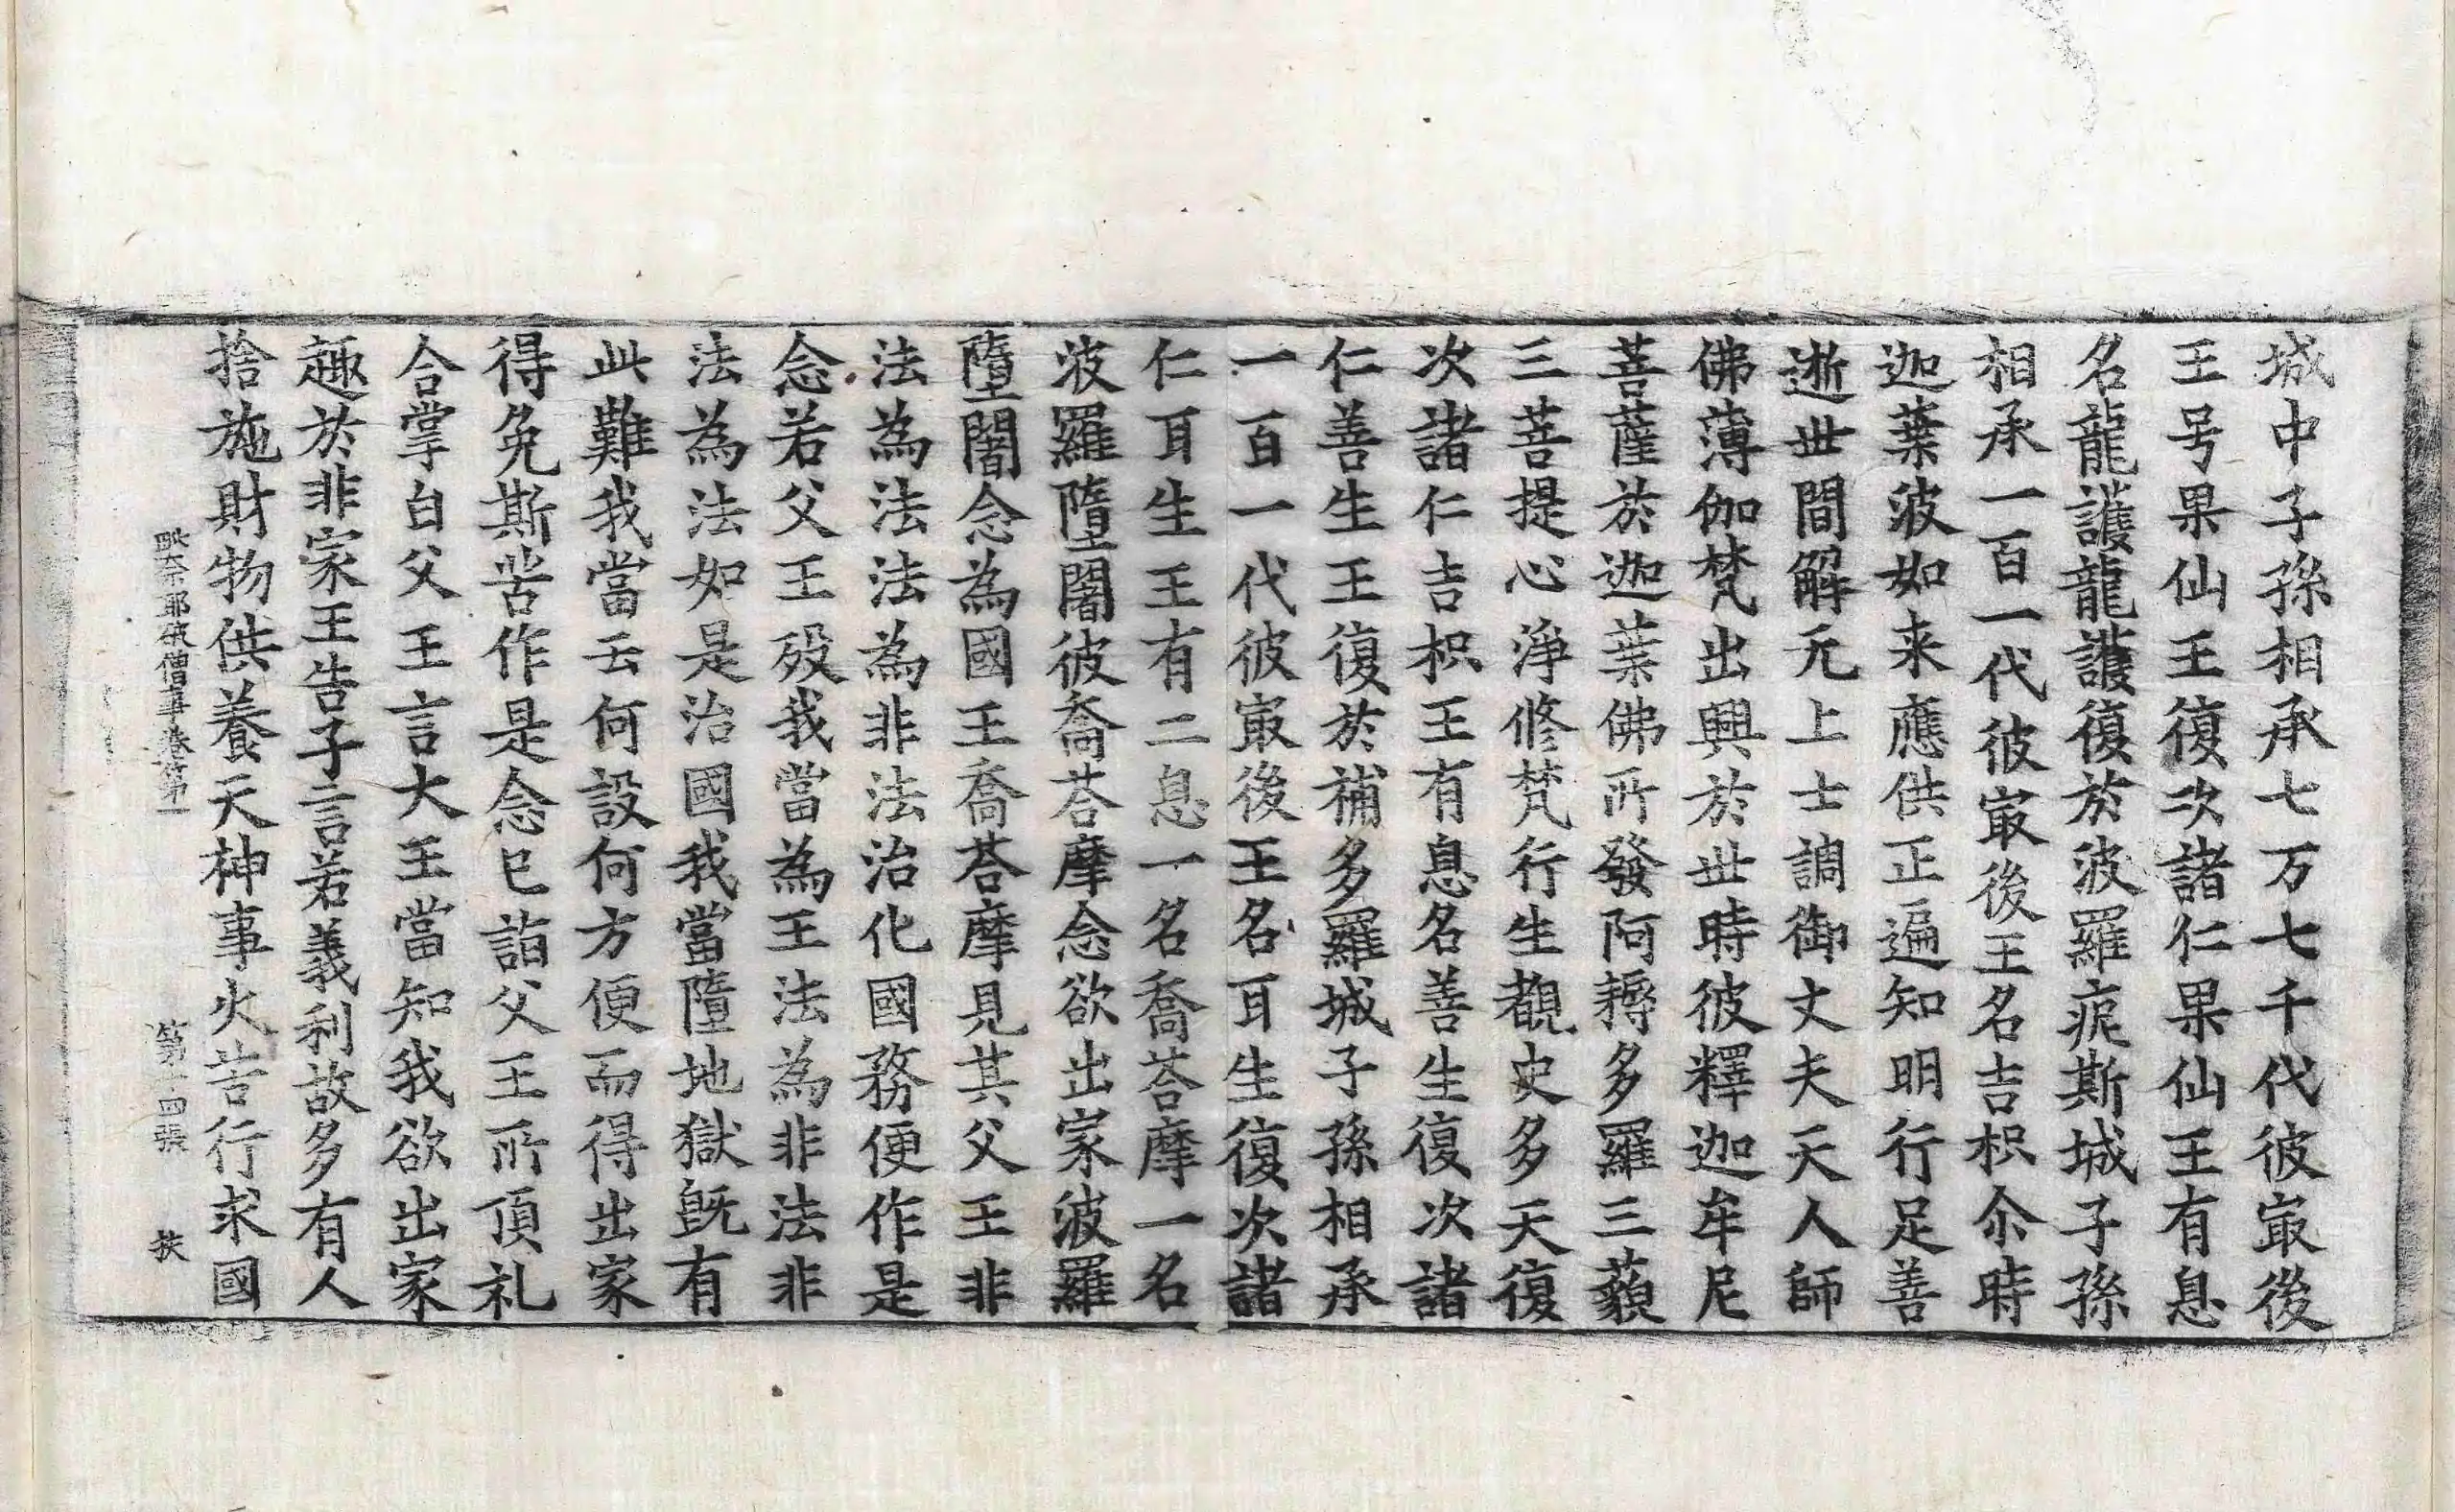 城中子孫相承七万七千代彼㝡後
王号果仙王復次諸仁果仙王有息
名龍護龍護復於波羅痆斯城子孫
相承一百一代彼㝡後王名吉枳尒時
迦葉波如来應供正遍知明行足善
逝世間解无上士調御丈夫天人師
佛薄伽梵出興於世時彼釋迦牟尼
菩薩於迦葉佛所發阿耨多羅三藐
三菩提心淨修梵行生覩史多天復
次諸仁吉枳王有息名善生復次諸
仁善生王復於補多羅城子孫相承
一百一代彼㝡後王名耳生復次諸
仁耳生王有二息一名喬荅摩一名
波羅墮闍彼喬荅摩念欲出家波羅
墮闍念為國王喬荅摩見其父王非
法為法法為非法治化國務便作是
念若父王歿我當為王法為非法非
法為法如是治國我當墮地獄旣有
此難我當云何設何方便而得出家
得免斯苦作是念已詣父王所頂礼
合掌白父王言大王當知我欲出家
趣於非家王告子言若義利故多有人
捨施財物供養天神事火苦行求國
耶破僧事卷第一 第十四張 扶